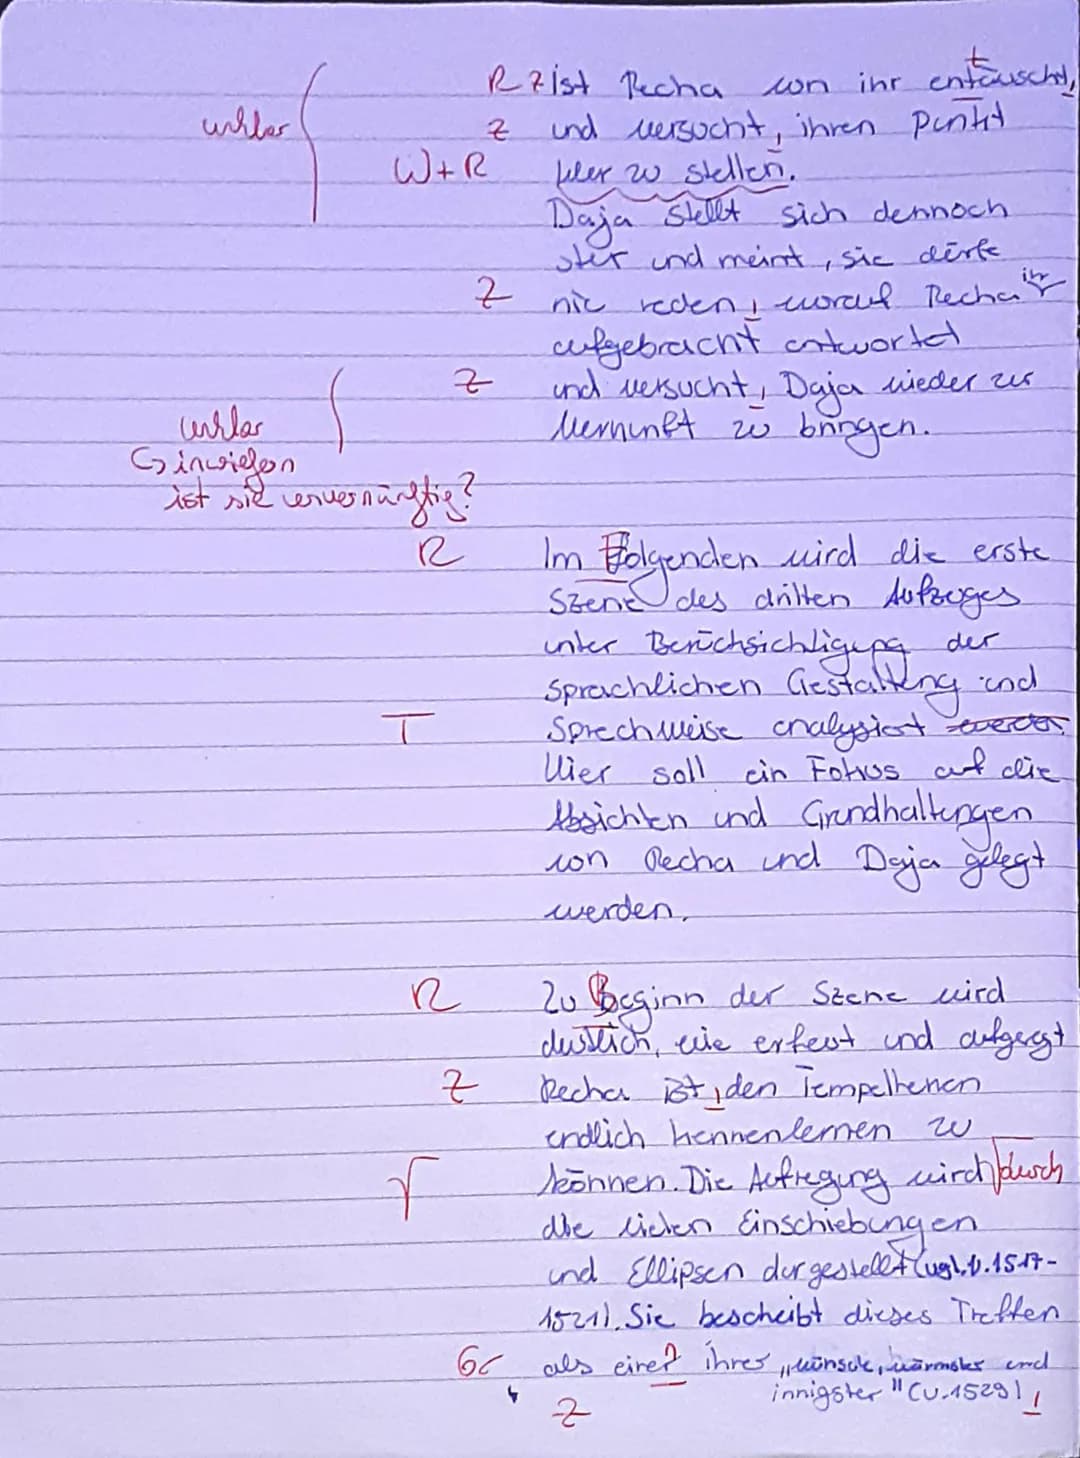 t
R Z ist Recha von ihr entäuscht,
unklar Z und versucht, ihren Punkt
W+R klar zu stellen.
Daja stellt sich dennoch
stur und meint, sie dürfe
Z nie reden, worauf Recha ihr
aufgebracht antwortet
Z und versucht, Daja wieder zur
unklar Vernunft zu bringen.
↪ inwiefern
ist sie unvernünftig?
R Im Folgenden wird die erste
Szene des dritten Aufzuges
unter Berücksichtigung der
sprachlichen Gestaltung und
T Sprechweise analysiert werden.
Hier soll ein Fokus auf die
Absichten und Grundhaltungen
von Recha und Daja gelegt
werden.
R Zu Beginn der Szene wird
deutlich, wie erfeut und aufgeregt
Z Recha ist, den Tempelherren
endlich kennenlernen zu
Γ können. Die Aufregung wird durch
die vielen Einschiebungen
und Ellipsen dargestellt (vgl. V. 1517-
1521). Sie bescheibt dieses Treffen
Gr als einer ihres „wünsche, wärmster und
Z innigster" (V. 1529),